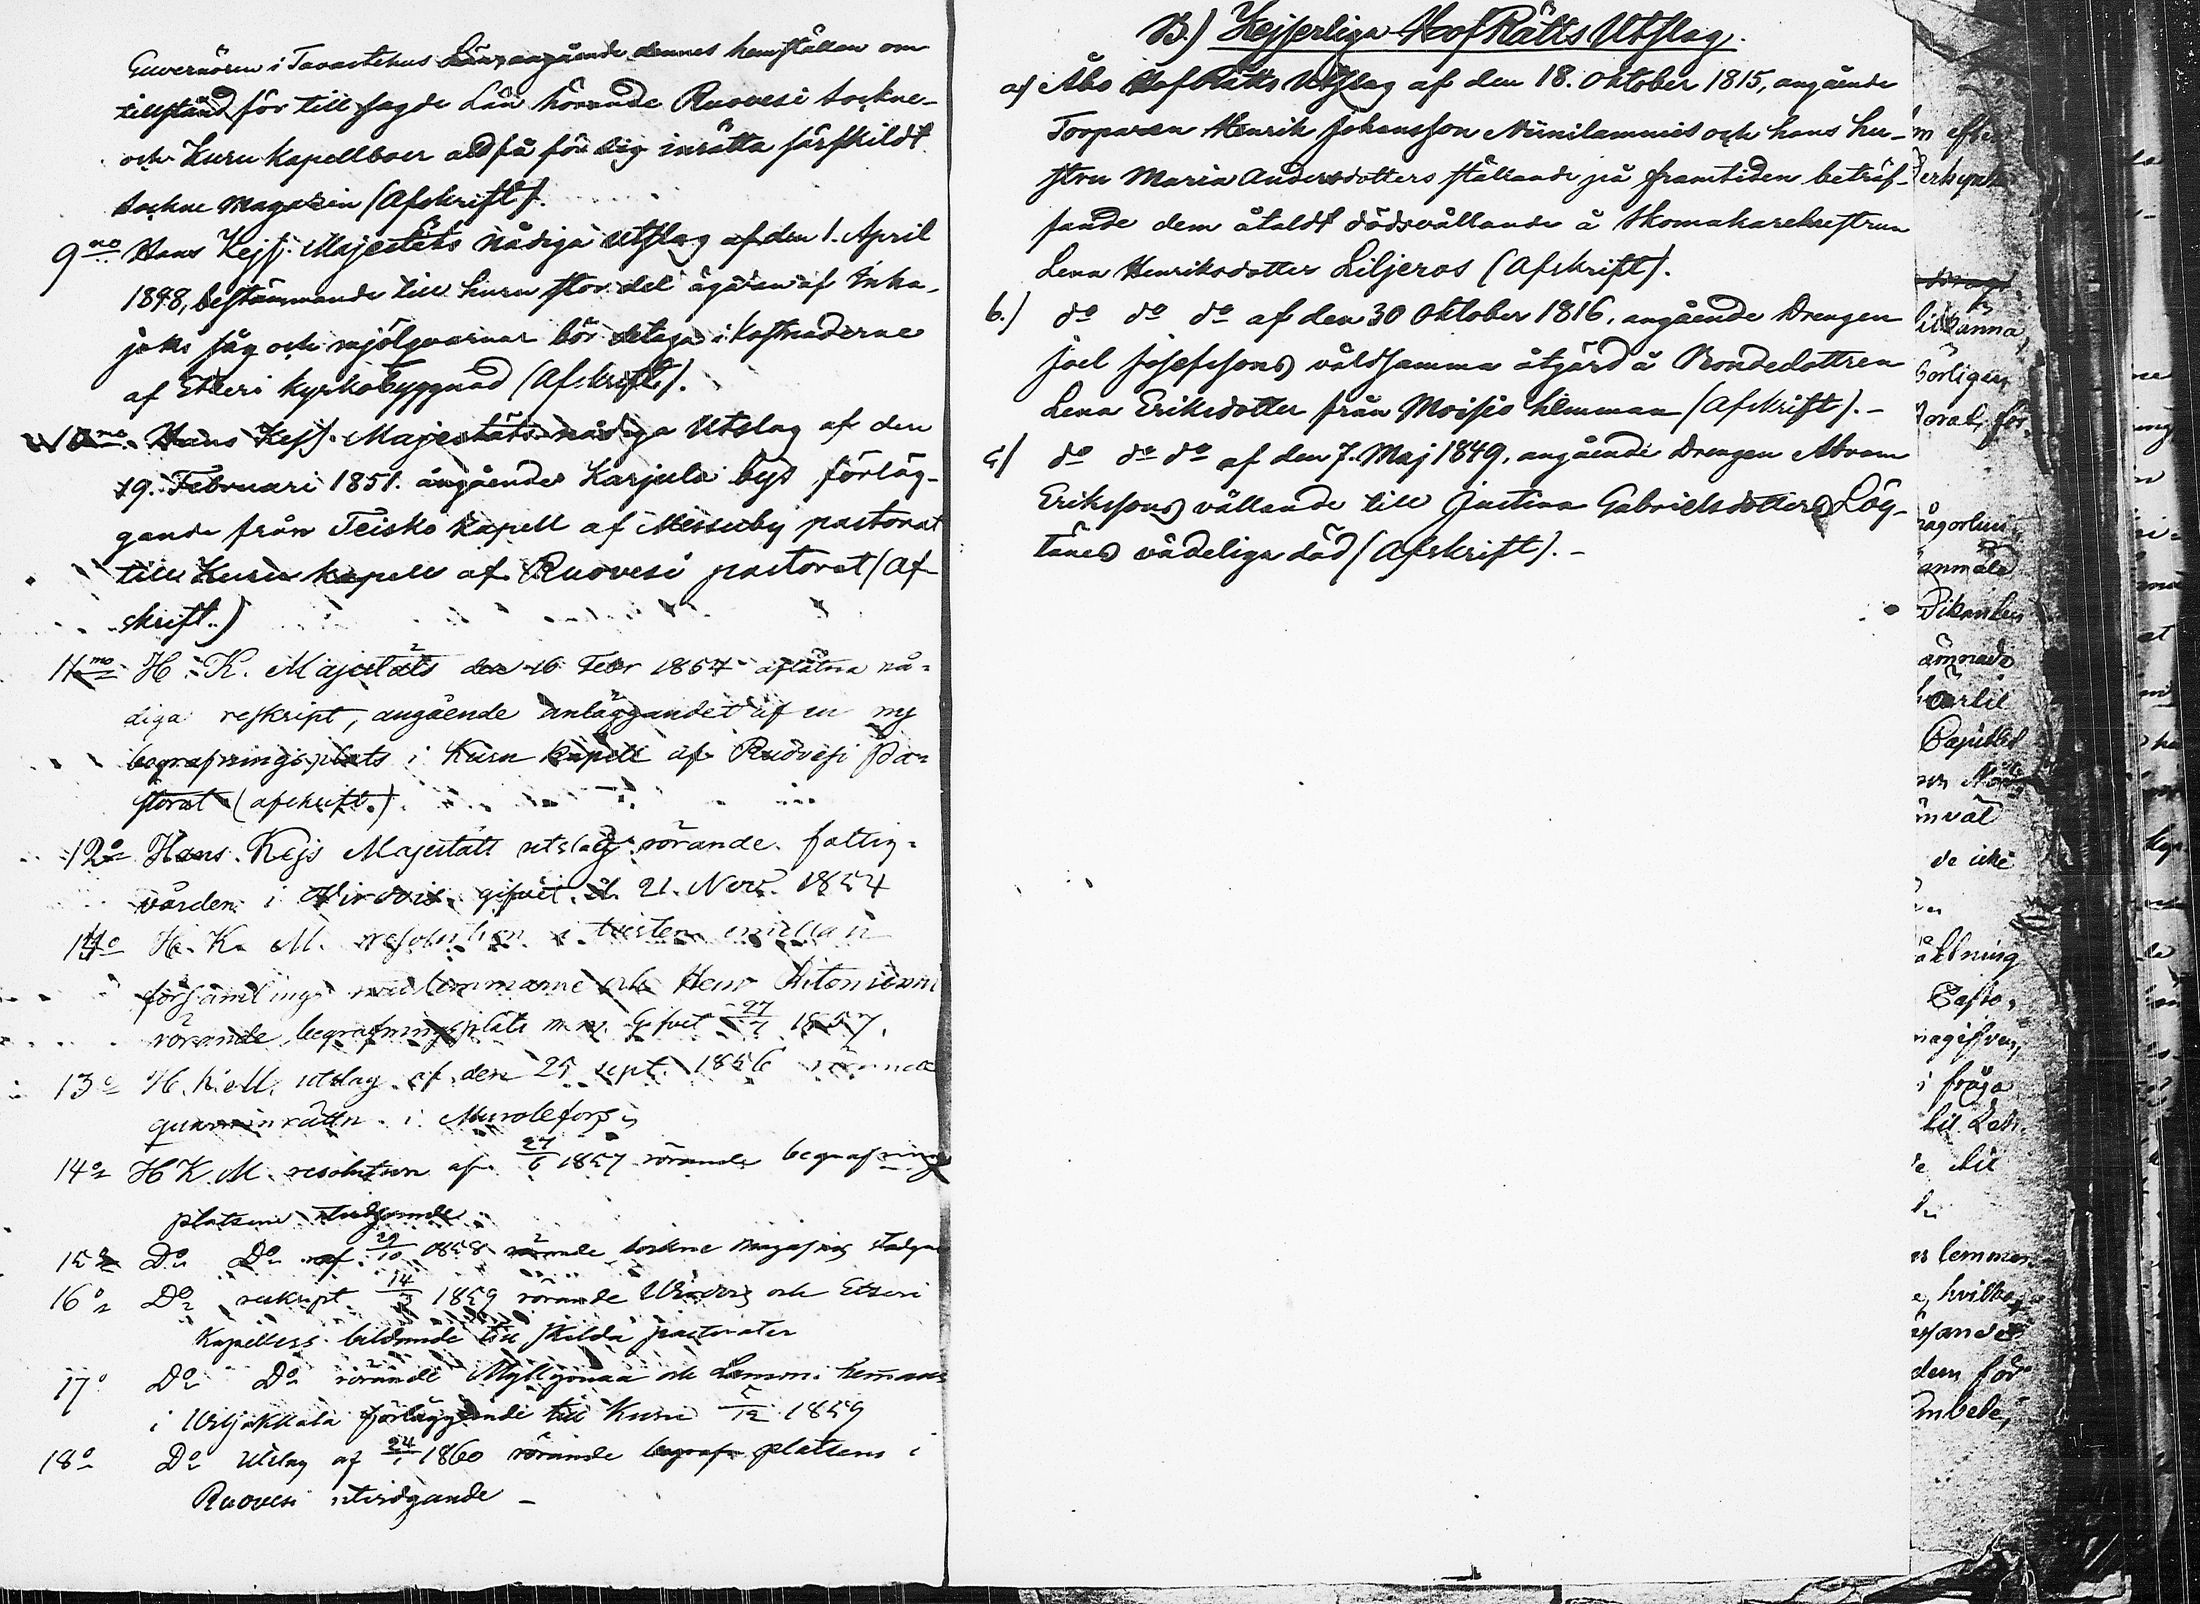 Guvernören i Tavastehus Län, angående dennes hemställan om
tillstånd för till sagde Län hörande Ruovesi sockne-
och Kuru Kapellboer att få för sig inrätta särskildt
sockne magazin (Afskrift).
9no Hans Kejs. Majestäts nådiga utslag af den 1. April
1848, bestämmande till huru stor del ägaren af Inka-
joki såg och mjölqvarnar bör deltaga i kostnaderne
af Etseri kyrkobyggnad (Afskrift).
10mo Hans Kejs. Majestäts nådiga Utslag af den
19. Februari 1851. angående Karjula bys förläg-
gande från Teisko Kapell af Messuby pastorat
till Kuru kapell af Ruovesi pastorat (Af-
skrift.)
11mo H. K. Majestäts den 16 Febr 1854 aflåtna nå-
diga reskript, angående anläggandet af en ny
begrafningsplats i Kuru kapell af Ruovesi Pa-
storat (afskrift.)
12o Hans Kejs Majestäts utslag rörande fattig-
vården i Virdois gifvet d. 21. Nov. 1854
H. K. M. resolution i tvisten emellan
församlings medlemmarne och Henr
rörande begrafningsplats m.m. Gifvet 1857.
13o H. K. M. utslag af den 25 sept. 1856 rörande
qvarninrättn. i Murolefors
14o H K. M. resolution af 27/6 1857 rörande begrafnings
platsens utvidgande
15o Do Do af 29/10 1858 rörande sockne magasins stadgar
16o Do reskript 14/3 1859 rörande Virdois och Etseri
Kapellers bildande till skilda pastorater
17o Do Do rörande Myllyomaa och hemman
i Viljakkala förläggande till Kuru 5/12 1859
18o Do Utslag af 24/1 1860 rörande begrafn platsens i
Ruovesi utvidgande –
B.) Kejserliga HofRätts Utslag.
a) Åbo HofRätts Utslag af den 18. Oktober 1815, angående
Torparen Henrik Johansson Niinilammis och hans hu-
stru Maria Andersdotters ställande på framtiden beträf-
fande dem åtaldt dödsvållande å Skomakarehustrun
Lena Henriksdotter Liljeros (Afskrift).
b.) do do do af den 30 Oktober 1816, angående Drengen
Joel Josefssons våldsamma åtgärd å Bondedottren
Lena Eriksdotter från Moisio hemman (Afskrift). –
c) do do do af den 7. Maj 1849, angående Drengen Abram
Erikssons vållande till Justina Gabrielsdotters Lög-
tänes vådeliga död (Afskrift). –